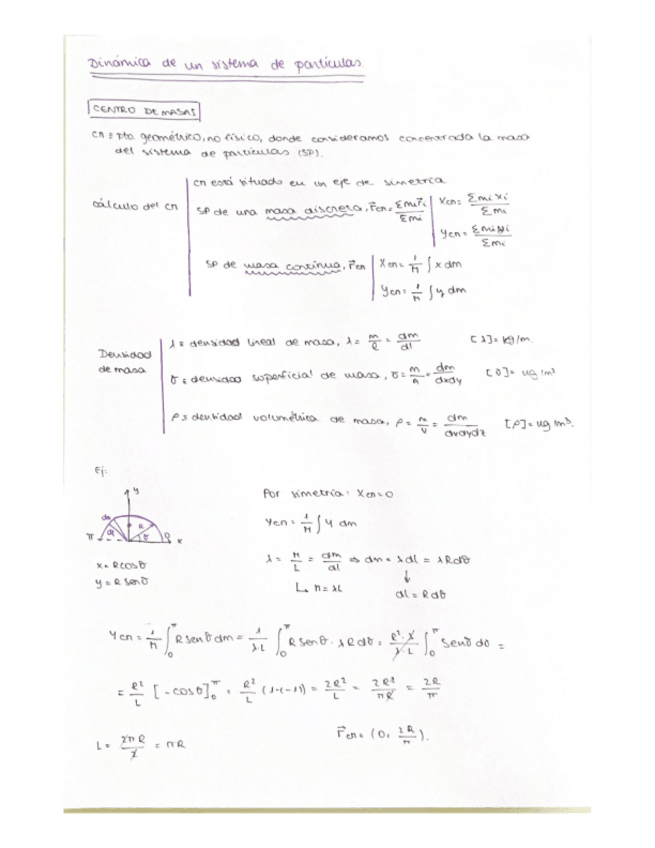 Dinámica de un sistema de partículas
CENTRO DE MASAS
CM ≡ pto. geométrico, no físico, donde consideramos concentrada la masa
del sistema de partículas (SP).
Cálculo del CM
CM está situado en un eje de simetría
SP de una masa discreta, r⃗CM = Σmi r⃗i / Σmi
XCM = Σmi xi / Σmi
YCM = Σmi yi / Σmi
SP de masa continua, r⃗CM
XCM = 1/M ∫ x dm
YCM = 1/M ∫ y dm
Densidad
de masa
λ ≡ densidad lineal de masa, λ = m/l = dm/dl [λ] = kg/m.
σ ≡ densidad superficial de masa, σ = m/A = dm/dxdy [σ] = kg/m²
ρ ≡ densidad volumétrica de masa, ρ = m/V = dm/dxdydz [ρ] = kg/m³.
Ej:
y
dm
dl
R
θ
π
0
x
x = R cosθ
y = R senθ
Por simetría: XCM = 0
YCM = 1/M ∫ y dm
λ = M/L = dm/dl ⇒ dm = λ dl = λ R dθ
↳ M = λL
↓
dl = R dθ
YCM = 1/M ∫₀^π R senθ dm = 1/λ·L ∫₀^π R senθ · λ R dθ = R²·λ/λ·L ∫₀^π senθ dθ =
= R²/L [-cosθ]₀^π = R²/L (1-(-1)) = 2R²/L = 2R²/πR = 2R/π
L = 2πR/2 = πR
r⃗CM = (0, 2R/π).